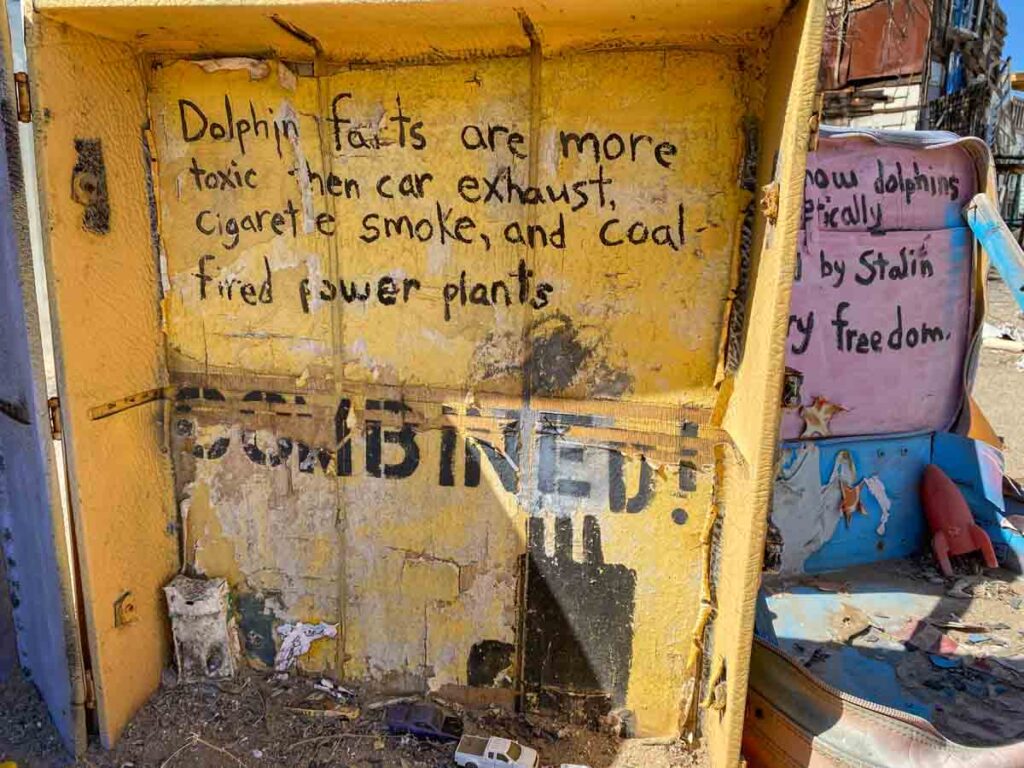 Dolphin farts are more
toxic then car exhaust,
cigarette smoke, and coal-
fired power plants
COMBINED!
dolphins
by Stalin
freedom.